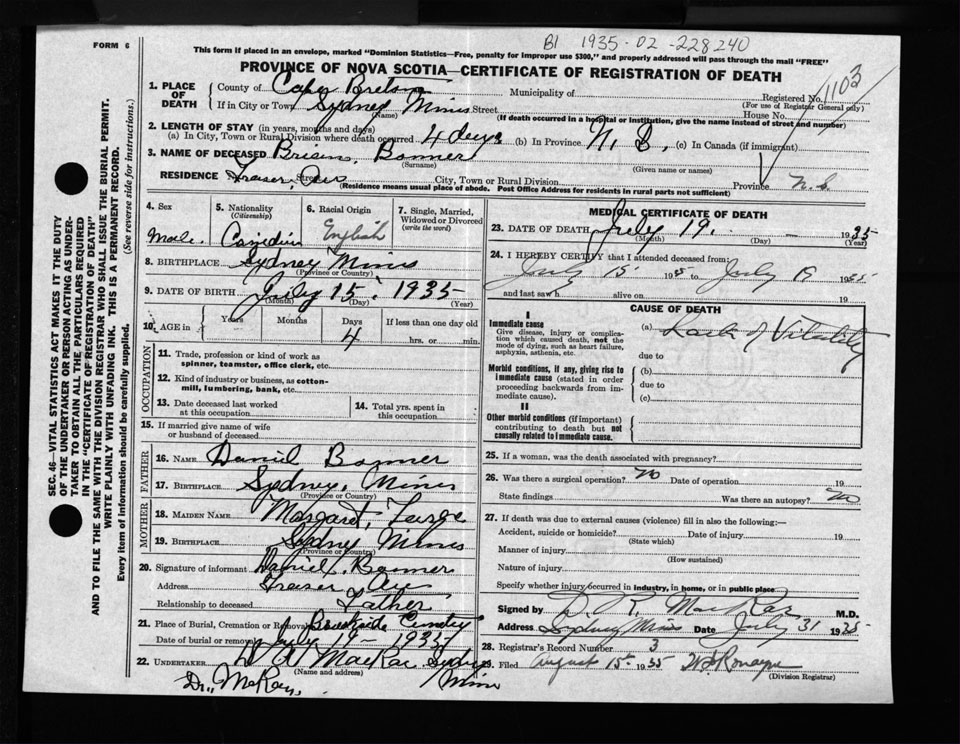 B1 1935-02-228240
FORM 6
This form if placed in an envelope, marked "Dominion Statistics—Free, penalty for improper use $300," and properly addressed will pass through the mail "FREE"
PROVINCE OF NOVA SCOTIA—CERTIFICATE OF REGISTRATION OF DEATH
1103
1. PLACE OF DEATH County of Cape Breton Municipality of Registered No.
(For use of Registrar General only)
If in City or Town Sydney Mines Street House No.
(Name) (If death occurred in a hospital or institution, give the name instead of street and number)
2. LENGTH OF STAY (in years, months and days)
(a) In City, Town or Rural Division where death occurred 4 days (b) In Province N. S. (c) In Canada (if immigrant)
3. NAME OF DECEASED Bonner
(Surname) (Given name or names)
RESIDENCE Fraser Ave Street City, Town or Rural Division Province N.S.
(Residence means usual place of abode. Post Office Address for residents in rural parts not sufficient)
4. Sex 5. Nationality (Citizenship) 6. Racial Origin 7. Single, Married, Widowed or Divorced (write the word)
Male English
8. BIRTHPLACE Sydney Mines
(Province or Country)
9. DATE OF BIRTH July 15, 1935
(Month) (Day) (Year)
10. AGE in Years Months Days If less than one day old
4 hrs. or min.
OCCUPATION
11. Trade, profession or kind of work as spinner, teamster, office clerk, etc.
12. Kind of industry or business, as cotton-mill, lumbering, bank, etc.
13. Date deceased last worked at this occupation 14. Total yrs. spent in this occupation
15. If married give name of wife or husband of deceased
FATHER
16. NAME Daniel Bonner
17. BIRTHPLACE Sydney Mines
(Province or Country)
MOTHER
18. MAIDEN NAME Margaret
19. BIRTHPLACE Sydney Mines
(Province or Country)
20. Signature of informant Daniel Bonner
Address Fraser Ave
Relationship to deceased Father
21. Place of Burial, Cremation or Removal Brookside
Date of burial or removal July 19- 1935
22. UNDERTAKER Sydney
(Name and address) Mines
Dr. McKay
MEDICAL CERTIFICATE OF DEATH
23. DATE OF DEATH July 19. 1935
(Month) (Day) (Year)
24. I HEREBY CERTIFY that I attended deceased from:
July 15 1935 to July 19 1935
and last saw h alive on 19
CAUSE OF DEATH
I
Immediate cause (a) Lack of Vitality
Give disease, injury or complication which caused death, not the mode of dying, such as heart failure, asphyxia, asthenia, etc.
due to
Morbid conditions, if any, giving rise to immediate cause (stated in order proceeding backwards from immediate cause).
(b)
due to
(c)
II
Other morbid conditions (if important) contributing to death but not causally related to immediate cause.
25. If a woman, was the death associated with pregnancy?
26. Was there a surgical operation? No Date of operation 19
State findings Was there an autopsy? No
27. If death was due to external causes (violence) fill in also the following:—
Accident, suicide or homicide? Date of injury 19
(State which)
Manner of injury
(How sustained)
Nature of injury
Specify whether injury occurred in industry, in home, or in public place
Signed by M.D.
Address Sydney Mines Date July 31 1935
28. Registrar's Record Number 3
29. Filed August 15th 1935
(Division Registrar)
SEC. 46—VITAL STATISTICS ACT MAKES IT THE DUTY
OF THE UNDERTAKER OR PERSON ACTING AS UNDER-
TAKER TO OBTAIN ALL THE PARTICULARS REQUIRED
IN THE "CERTIFICATE OF REGISTRATION OF DEATH"
AND TO FILE THE SAME WITH THE DIVISION REGISTRAR WHO SHALL ISSUE THE BURIAL PERMIT.
WRITE PLAINLY WITH UNFADING INK. THIS IS A PERMANENT RECORD.
Every item of information should be carefully supplied. (See reverse side for instructions.)